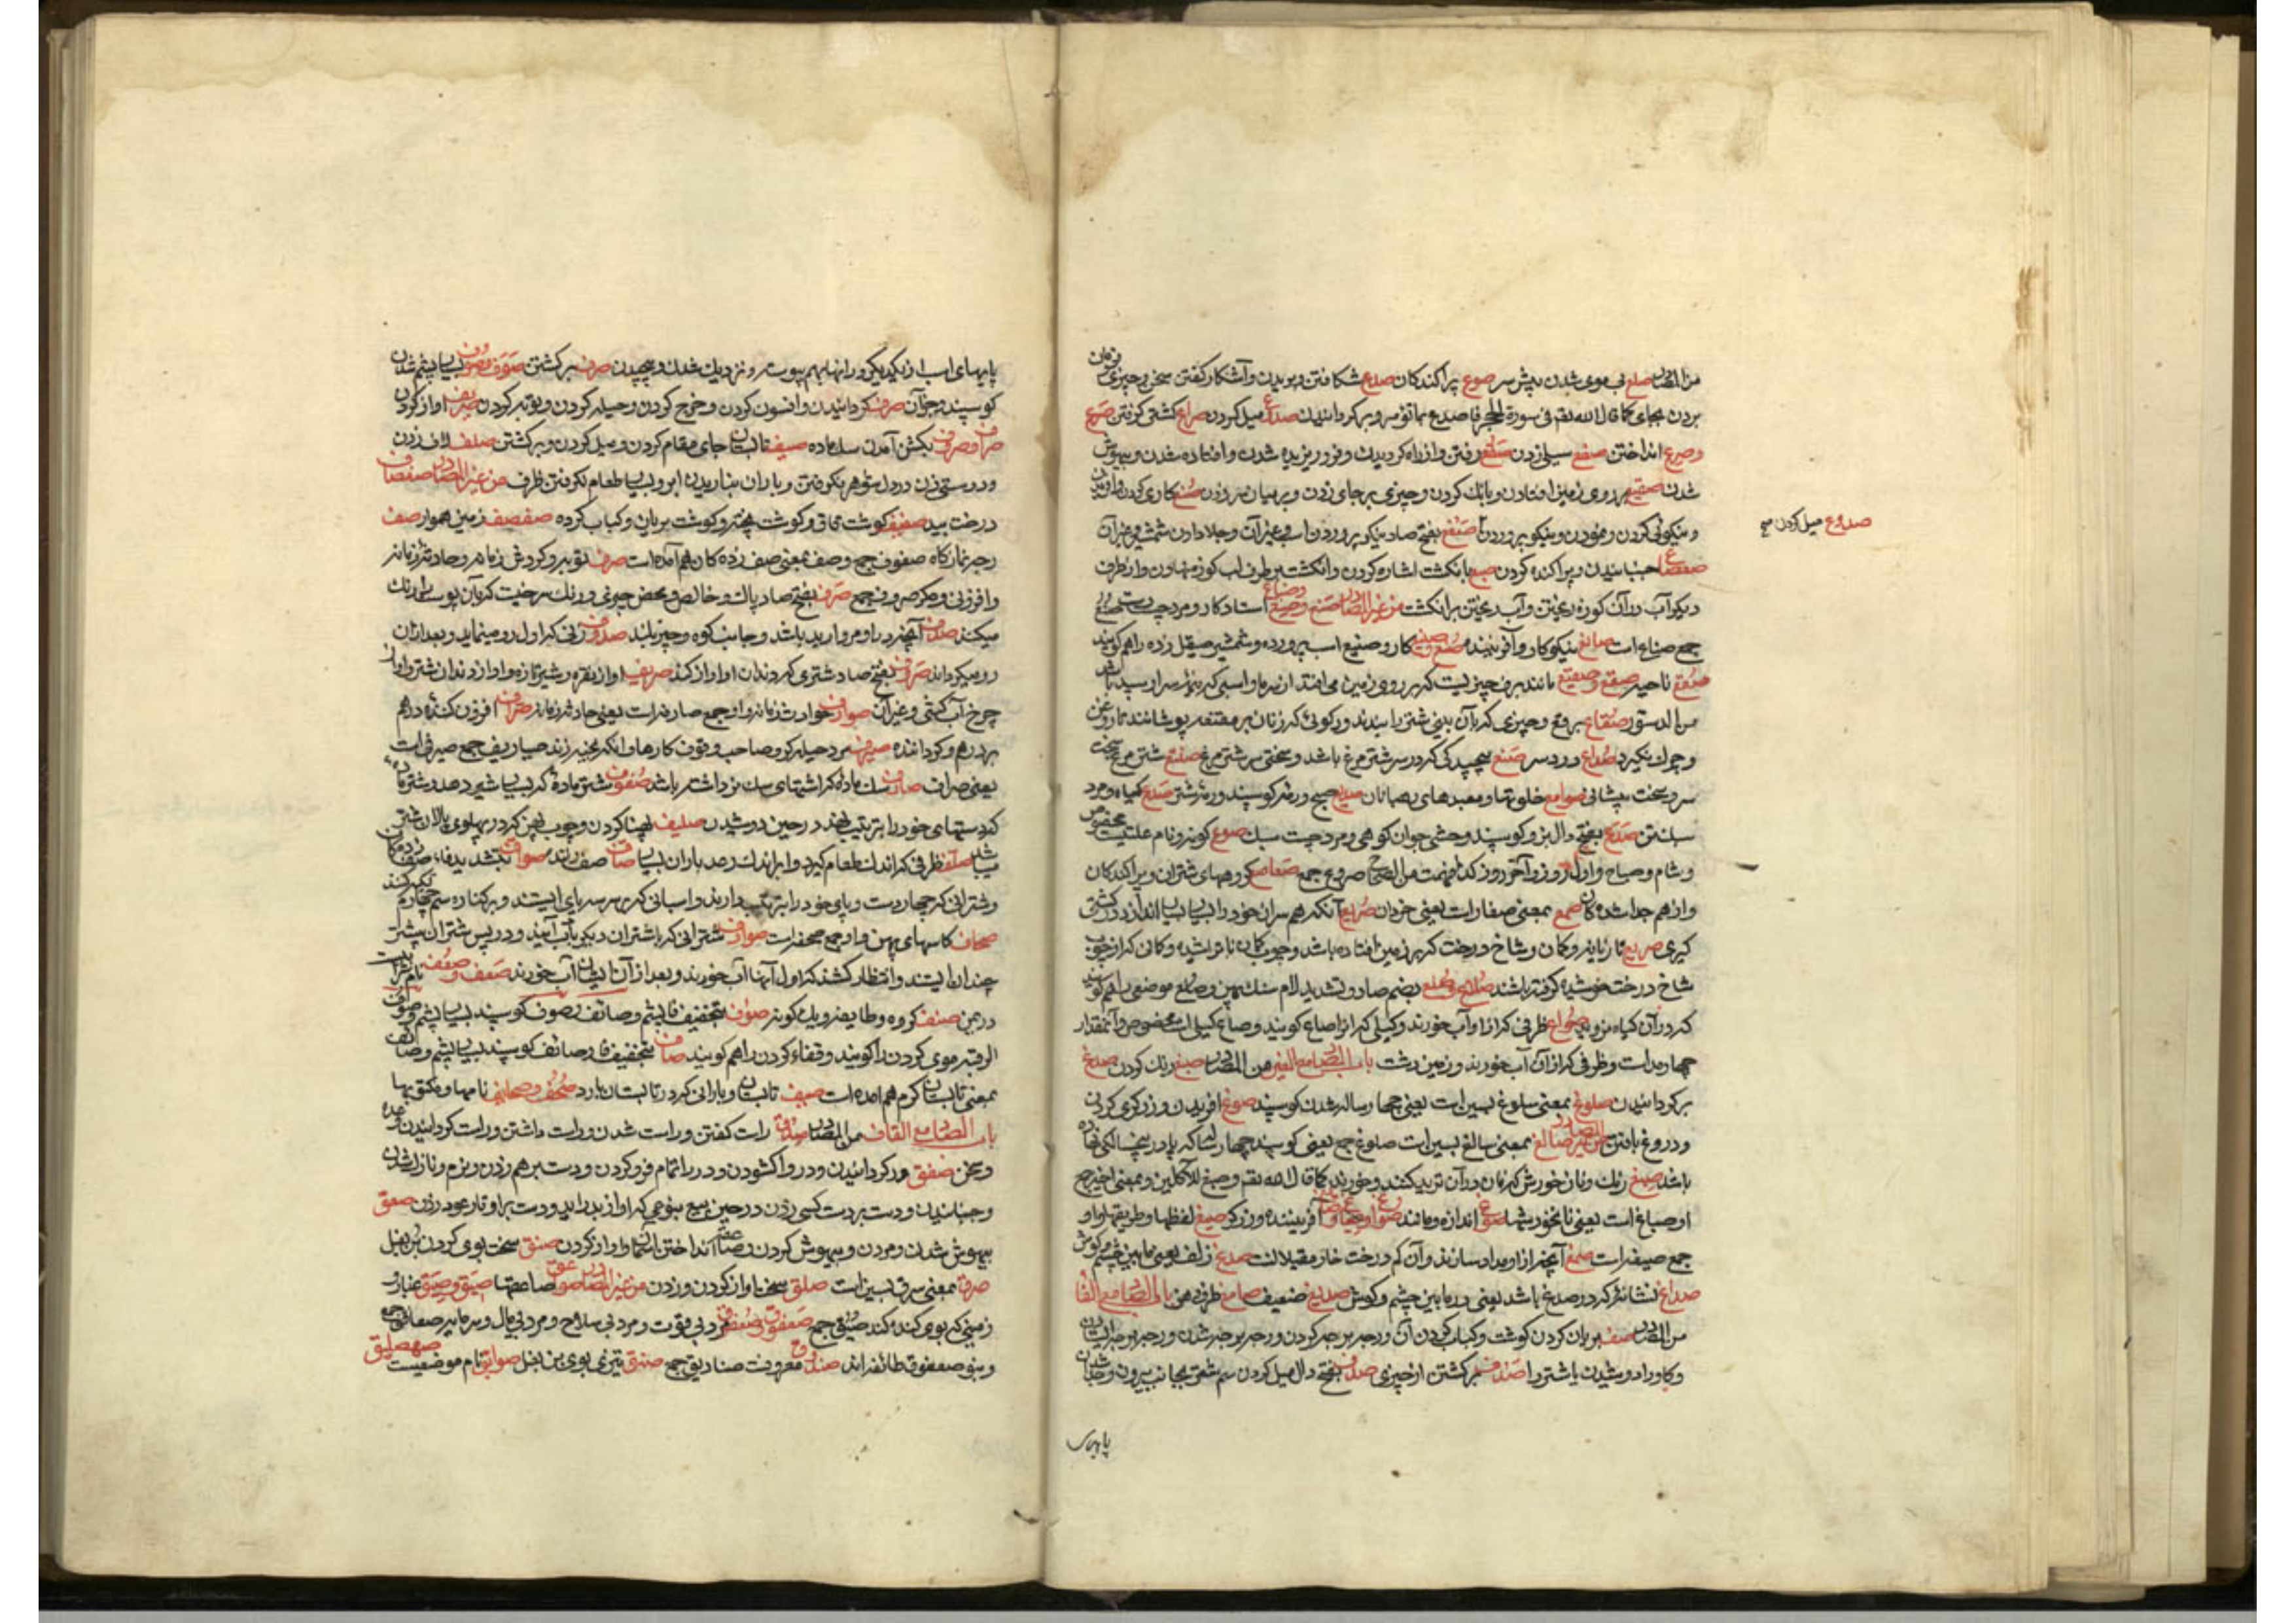 من المصادر صلع بی موی شدن پیش سر صوع پراکندکان صدع شکافتن و بریدن و آشکار کفتن سخن و چیزی فرمان
بردن بجای کما قال الله تعم فی سورة الحجر فاصدع بما تؤمر و برکردانیدن صدوع میل کردن صراع کشتی کرفتن صرع
وصرع انداختن صفع سیلی زدن صقع رفتن و از راه کردیدن و فرو ریزیده شدن و افتاده شدن و بیهوش
شدن صقیع بر روی زمین افتادن و بانک کردن و چیزی بر جای زدن و بر میان سر زدن صنع کاری کردن و آفریدن
و نیکوئی کردن و نمودن و نیکو پروردن صنع بفتح صاد نیکو پروردن اسب و غیر آن و جلا دادن شمشیر و غیر آن
صعصاع جنبانیدن و پراکنده کردن صبع بانکشت اشاره کردن و انکشت بر طرف لب کوزه نهادن و از طرف
دیکر آب در آن کوزه ریختن و آب ریختن بر انکشت من غیر المصادر صنع وصنیع وصناع استاد کار و مرد چرب دست صنع
جمع صناع است صانع نیکو کار و آفریننده صنع صنیع کار و صنیع اسب پرورده و شمشیر صیقل زده را هم کویند
صقع ناحیه صقع و صقیع مانند برف چیزیست که بر روی زمین می افتد از سرما و اسبی که میان سر او سپید باشد
من الدستور صقاع برقع و چیزی که بآن بینی شتر را ببندند و رکوئی که زنان بر مقنعه پوشانند تا روغن
و چرک نکیرد صداع درد سر صنع پیچیدکی که در سر شتر مرغ باشد و سختی سر شتر مرغ صنتع شتر مرغ سخت
سر و سخت پیشانی صوامع خلوتها و معبدهای رهبانان صدیع صبح و رمه کوسپند و رمه شتر صدع کیاه و مرد
سبک تن صدع بفتح دال بز و کوسپند وحشی جوان کوهی و مرد چست سبک صوع کویند و نام علتیست مخصوص
و شام و صباح و اول روز و آخر روز کذا فهمت من الصحاح صروع جمع صعاصع کروههای شتران و پراکندکان
و از هم جدا شده کان صمع بمعنی صغار است یعنی خردان صریع آنکه هم سران خود را بسیار بسیار اندازد در کشتی
کیری صریع تازیانه و کمان و شاخ درخت که بر زمین افتاده باشد و چوب کمان ناتراشیده و کمان که از چوب
شاخ درخت خوشیده کرفته باشند صلاع و صلع بضم صاد و تشدید لام سنک پهن و صلع موضعی را هم کویند
که در آن کیاه نروید صواع ظرفی که از او آب خورند و کیلی که او را صاع کویند و صاع کیلی است مخصوص و آن مقدار
چهار مد است و ظرفی که از آن آب خورند و زمین پست باب الصاد مع الغین من المصادر صبغ رنک کردن صدغ
برکردانیدن صلوغ بمعنی سلوغ بسین است یعنی چهار ساله شدن کوسپند صوغ آفریدن و زرکری کردن
و دروغ بافتن من غیر المصادر صالغ بمعنی سالغ بسین است صلوغ جمع یعنی کوسپند چهار ساله که پا در پنج سالکی نهاده
باشد صبغ رنک و نان خورش که نان در آن ترید کنند و خورند کما قال الله تعم وصبغ للآکلین و بمعنی اخیر جمع
او صباغ است یعنی نانخورشها صوغ اندازه و مانند صواغ و صیاغ و صائغ آفریننده و زرکر صیغ لفظها و طریقها و او
جمع صیغه است صمغ آنچه از او مداد سازند و آن کم درخت خار مغیلانست صدغ زلف یعنی مابین چشم و کوش
صداغ نشانه که در صدغ باشد یعنی در مابین چشم و کوش صدیغ ضعیف صامغ ظرف دهن باب الصاد مع الفا
من المصادر صف بریان کردن کوشت و کباب کردن آن و رجه بر جه کردن و رجه بر جه شدن و رجه بر جه ایستادن
و کاو را دوشیدن یا شتر را صدف برکشتن از چیزی صدف بفتح دال میل کردن سم شتر بجانب بیرون و جدا شدن
پایهای
صدوع میل کردن صح
پایهای اسب از یکدیکر و رانها بهم پیوسته و نزدیک شدن و پیچیدن صرف برکشتن صوف و صووف بسیار پشم شدن
کوسپند و جز آن صرف کردانیدن و افسون کردن و خرج کردن و حیله کردن و توبه کردن صریف آواز کردن
صراف و صروف بکش آمدن سک ماده صیف تابستان جای مقام کردن و میل کردن و برکشتن صلف لاف زدن
و دوستی زن در دل شوهر نکرفتن و باران نباریدن ابر و بسیار طعام نکرفتن ظرف من غیر المصادر صفصاف
درخت بید صفیف کوشت قاق و کوشت پخته و کوشت بریان و کباب کرده صفصف زمین هموار صف
رجه نمازکاه صفوف جمع و صف بمعنی صف زده کان هم آمده است صرف توبه و کردش زمانه و حادثه زمانه
و افزونی و مکر صروف جمع صرف بفتح صاد پاک و خالص و محض چیزی و رنک سرخیست که بآن پوست را رنک
میکنند صدف آنچه در او مروارید باشد و جانب کوه و چیز بلند صدوف زنی که اول رو مینماید و بعد از آن
رو میکرداند صروف بفتح صاد شتری که دندان او آواز کند صریف آواز نقره و شیر تازه و آواز دندان شتر و آواز
چرخ آب کشی و غیر آن صوارف حوادث زمانه و او جمع صارفه است یعنی حادثه زمانه صراف افزون کننده درهم
بر درهم و کرداننده صیرف مرد حیله کر و صاحب وقوف کارها و آنکه بخیه زند صیاریف جمع صیرفی است
یعنی صراف صارف سک ماده که اشتهای سک نر داشته باشد صفوف شتر ماده که بسیار شیر دهد و شتر ماده
که دستهای خود را بترتیب نهد در حین دوشیدن صلیف پهنا کردن و چوب پهن که در پهلوی پالان شتر
باشد صلف ظرفی که اندک طعام کیرد و ابر اندک رعد باران بسیار صاف صف زننده صواف بتشدید فاء صف زده کان
و شترانی که چهار دست و پای خود را بترتیب دارند و اسبانی که بر سر سه پای ایستند و بر کناره سم چهارم تکیه کنند
صحاف کاسهای پهن و او جمع صحفه است صوادف شترانی که با شتران دیکر بآب آیند و در پس شتران پیشتر
چندان ایستند و انتظار کشند که اول آنها آب خورند و بعد از آن ایشان آب خورند صعف و صعف نام شرابیست
در یمن صنف کروه و طایفه و یک کونه صوف بتخفیف فا پشم و صائف و صوف کوسپند بسیار پشم و صوف
الرقبه موی کردن را کویند و قفاء کردن را هم کویند صاف بتخفیف فا و صائف کوسپند بسیار پشم و صائف
بمعنی تابستان کرم هم آمده است صیف تابستان و بارانی که در تابستان بارد صحف و صحایف نامها و مکتوبها
باب الصاد مع القاف من المصادر صدق راست کفتن و راست شدن و راست داشتن و راست کردانیدن وعده
و سخن صفق ور کردانیدن و در وا کشودن و در را تمام فرو کردن و دست بر هم زدن و بزم و ناز شدن
و جنبانیدن و دست بر دست کسی زدن در حین بیع بنوعی که آواز بدر آید و دست بر اوتار عود زدن صعق
بیهوش شدن و مردن و بیهوش کردن و صاعقه انداختن آسمان و آواز کردن صنق سخت بوی کردن بن بغل
صرق بمعنی سرق بسین است صلق سخت آواز کردن و زدن من غیر المصادر صواعق صاعقها صیق و صیق غبار و
زمینی که بوی کنده کند صیق جمع صعفوق و صعفوق مرد بی قوت و مرد بی سلاح و مرد بی مال و سرمایه صعافق جمع
و بنو صعفوق طائفه اند صندوق معروفست صنادیق جمع صنق تیزی بوی بن بغل صوایق نام موضعیست صهصلیق